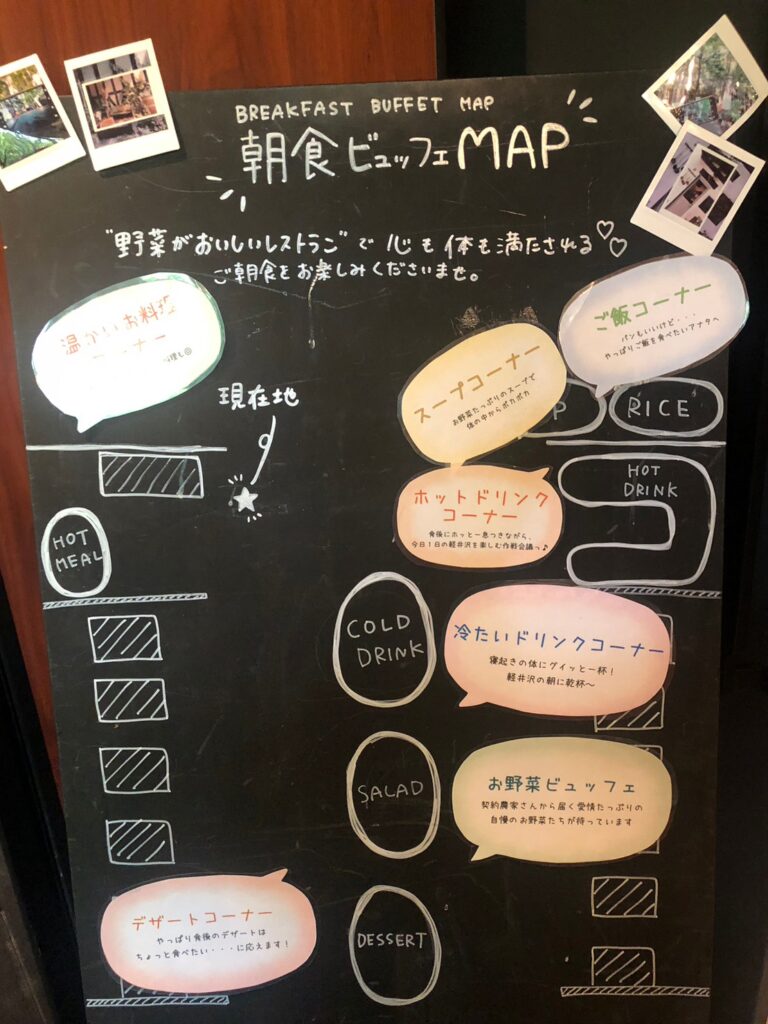 BREAKFAST BUFFET MAP
朝食ビュッフェMAP
"野菜がおいしいレストラン"で心も体も満たされる♡♡
ご朝食をお楽しみくださいませ。
温かいお料理
コーナー
ご飯コーナー
パンもいいけど・・・
やっぱりご飯を食べたいアナタへ
スープコーナー
お野菜たっぷりのスープで
体の中からポカポカ
現在地
P
RICE
ホットドリンク
コーナー
食後にホッと一息つきながら、
今日1日の軽井沢を楽しむ作戦会議っ♪
HOT
DRINK
HOT
MEAL
COLD
DRINK
冷たいドリンクコーナー
寝起きの体にグイッと一杯！
軽井沢の朝に乾杯～
SALAD
お野菜ビュッフェ
契約農家さんから届く愛情たっぷりの
自慢のお野菜たちが待っています
デザートコーナー
やっぱり食後のデザートは
ちょっと食べたい・・・に応えます！
DESSERT